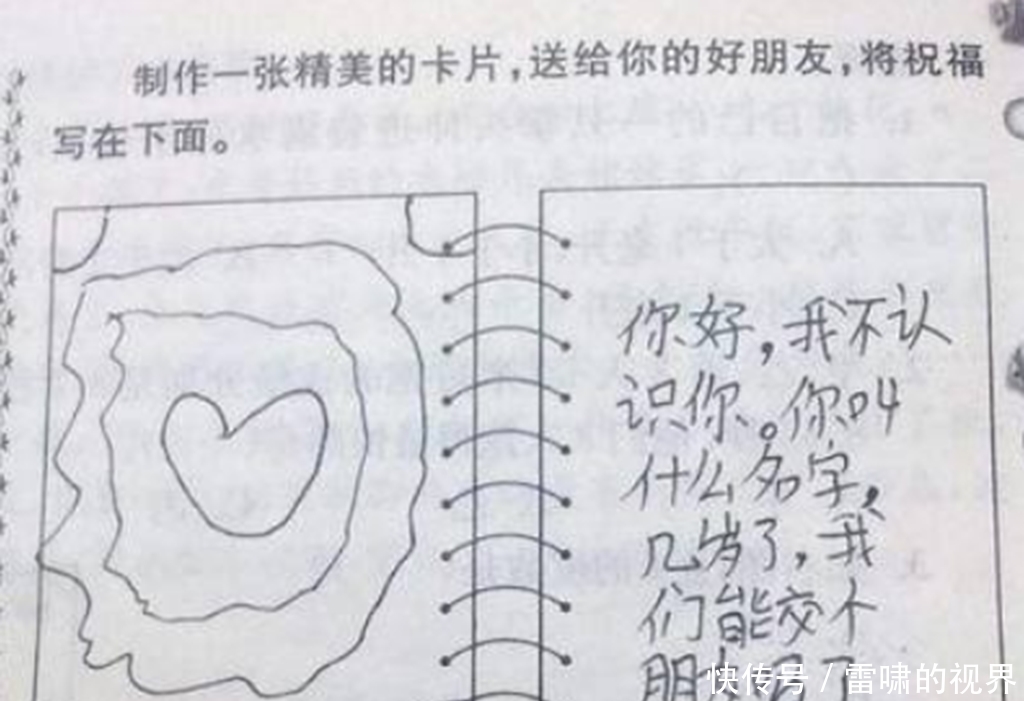 制作一张精美的卡片，送给你的好朋友，将祝福
写在下面。
你好，我不认
识你。你叫
什么名字，
几岁了，我
们能交个
朋
快传号 / 雷啸的视界